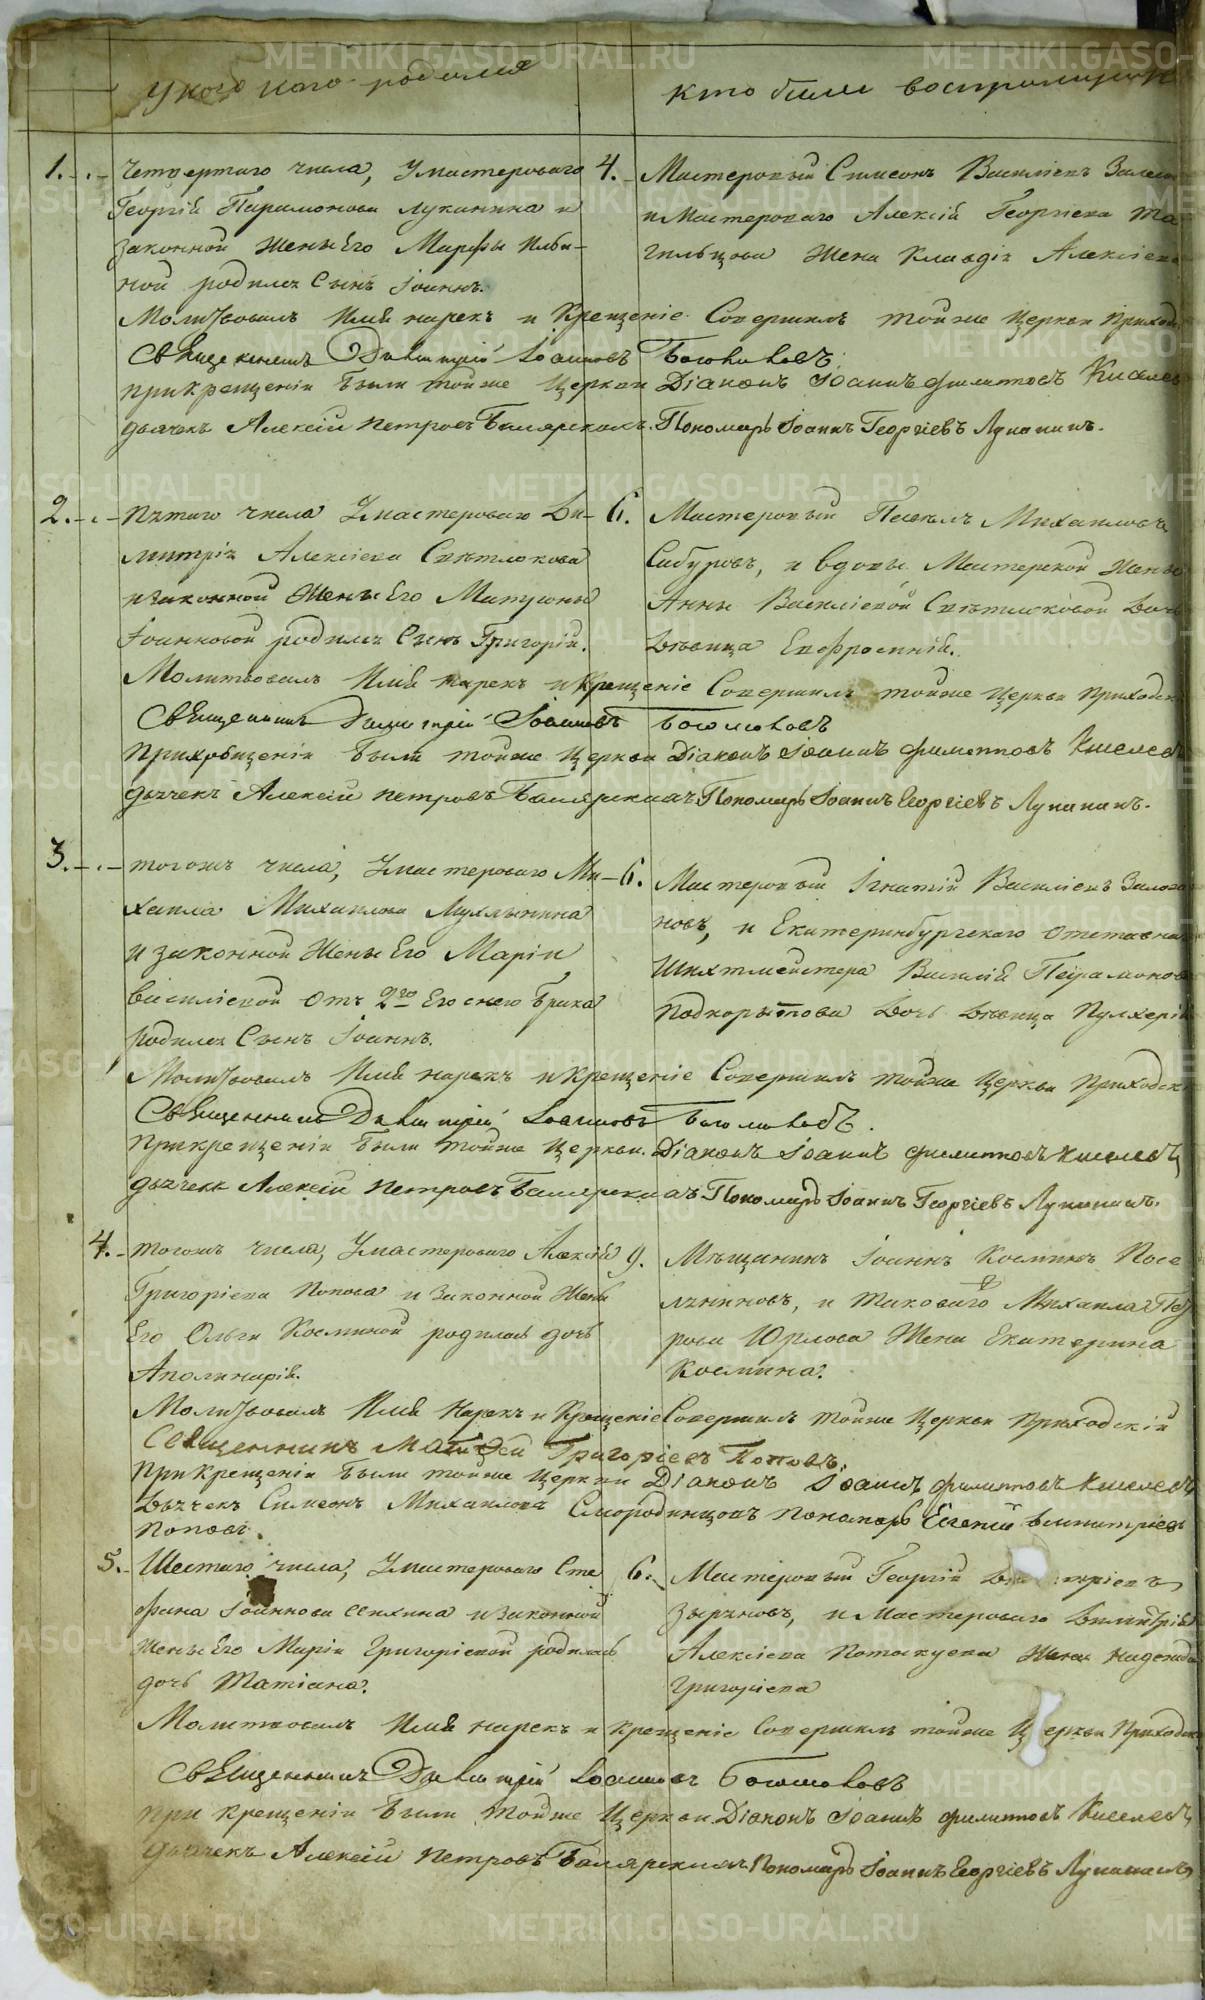 У кого кто родился
кто были воспріемники
1. Четвертаго числа, У мастероваго
Георгій Парамонова Луканина и
законной жены Его Марфы Ильи-
ной родился Сынъ Іоаннъ.
4. Мастеровый Симеонъ Василіевъ
и Мастероваго Алексій Георгіева Та
гильцова Жена Клавдія Алексіева
Молитвовалъ Имя нарекъ и Крещеніе Совершилъ тойже Церкви Приход
Священникъ Димитрій Іоанновъ Богомоловъ
при крещеніи были тойже Церкви Діаконъ Іоаннъ Филиповъ Киселев
дьячекъ Алексій Петровъ Пономарь Іоаннъ Георгіевъ Луканинъ.
2. Пятаго числа У мастероваго Ди-
митрія Алексіева Светлокова
и законной Жены Его Матроны
Іоанновой родился Сынъ Григорій.
6. Мастеровый Павелъ Михаиловъ
Сабуровъ, и вдовы Мастерской жены
Анны Василіевой Светлоковой Дочь
Девица Евфросинія.
Молитвовалъ Имя нарекъ и Крещеніе Совершилъ тойже Церкви Приходск
Священникъ Димитрій Іоанновъ Богомоловъ
при крещеніи были тойже Церкви Діаконъ Іоаннъ Филиповъ Киселевъ
дьячекъ Алексій Петровъ Пономарь Іоаннъ Георгіевъ Луканинъ.
3. тогожъ числа, У мастероваго Ми-
хаила Михаилова
и законной Жены Его Маріи
Василіевой отъ 2го Его снею брака
родился Сынъ Іоаннъ.
6. Мастеровый Игнатій Василіевъ
новъ, и Екатеринбургскаго отставна
Шихтмейстера Василій Парамонова
Подкорытова Дочь девица Пулхерія
Молитвовалъ Имя нарекъ и крещеніе Совершилъ тойже Церкви Приходск
Священникъ Димитрій Іоанновъ Богомоловъ.
При крещеніи были тойже Церкви Діаконъ Іоаннъ Филиповъ Киселевъ,
дьячекъ Алексій Петровъ Пономарь Іоаннъ Георгіевъ Луканинъ.
4. тогожъ числа, У мастероваго Алексій
Григоріева Попова и законной Жены
Его Ольги Косминой родилась дочь
Аполинарія.
9. Мещанинъ Іоаннъ Косминъ Посе
ляниновъ, и таковаго Михаила Пет
рова Юрлова Жена Екатерина
Космина.
Молитвовалъ Имя Нарекъ и Крещеніе Совершилъ тойже Церкви Приходскій
Священникъ Матфей Григоріевъ Поповъ.
При крещеніи были тойже Церкви Діаконъ Іоаннъ Филиповъ Киселевъ
Дьячекъ Симеонъ Михаиловъ Смородинцовъ Пономарь Евгеній Димитріев
Поповъ.
5. Шестаго числа, У мастероваго Сте
фана Іоаннова и законной
жены Его Маріи Григоріевой родилась
дочь Татіана.
6. Мастеровый Георгій
Зыряновъ, и Мастероваго Димитрія
Алексіева Потоскуева Жена Надежда
Григоріева
Молитвовалъ Имя нарекъ и крещеніе Совершилъ тойже Церкви Приходск
Священникъ Димитрій Іоанновъ Богомоловъ
При крещеніи были тойже Церкви Діаконъ Іоаннъ Филиповъ Киселевъ,
дьячекъ Алексій Петровъ Пономарь Іоаннъ Георгіевъ Луканинъ
METRIKI.GASO-URAL.RU